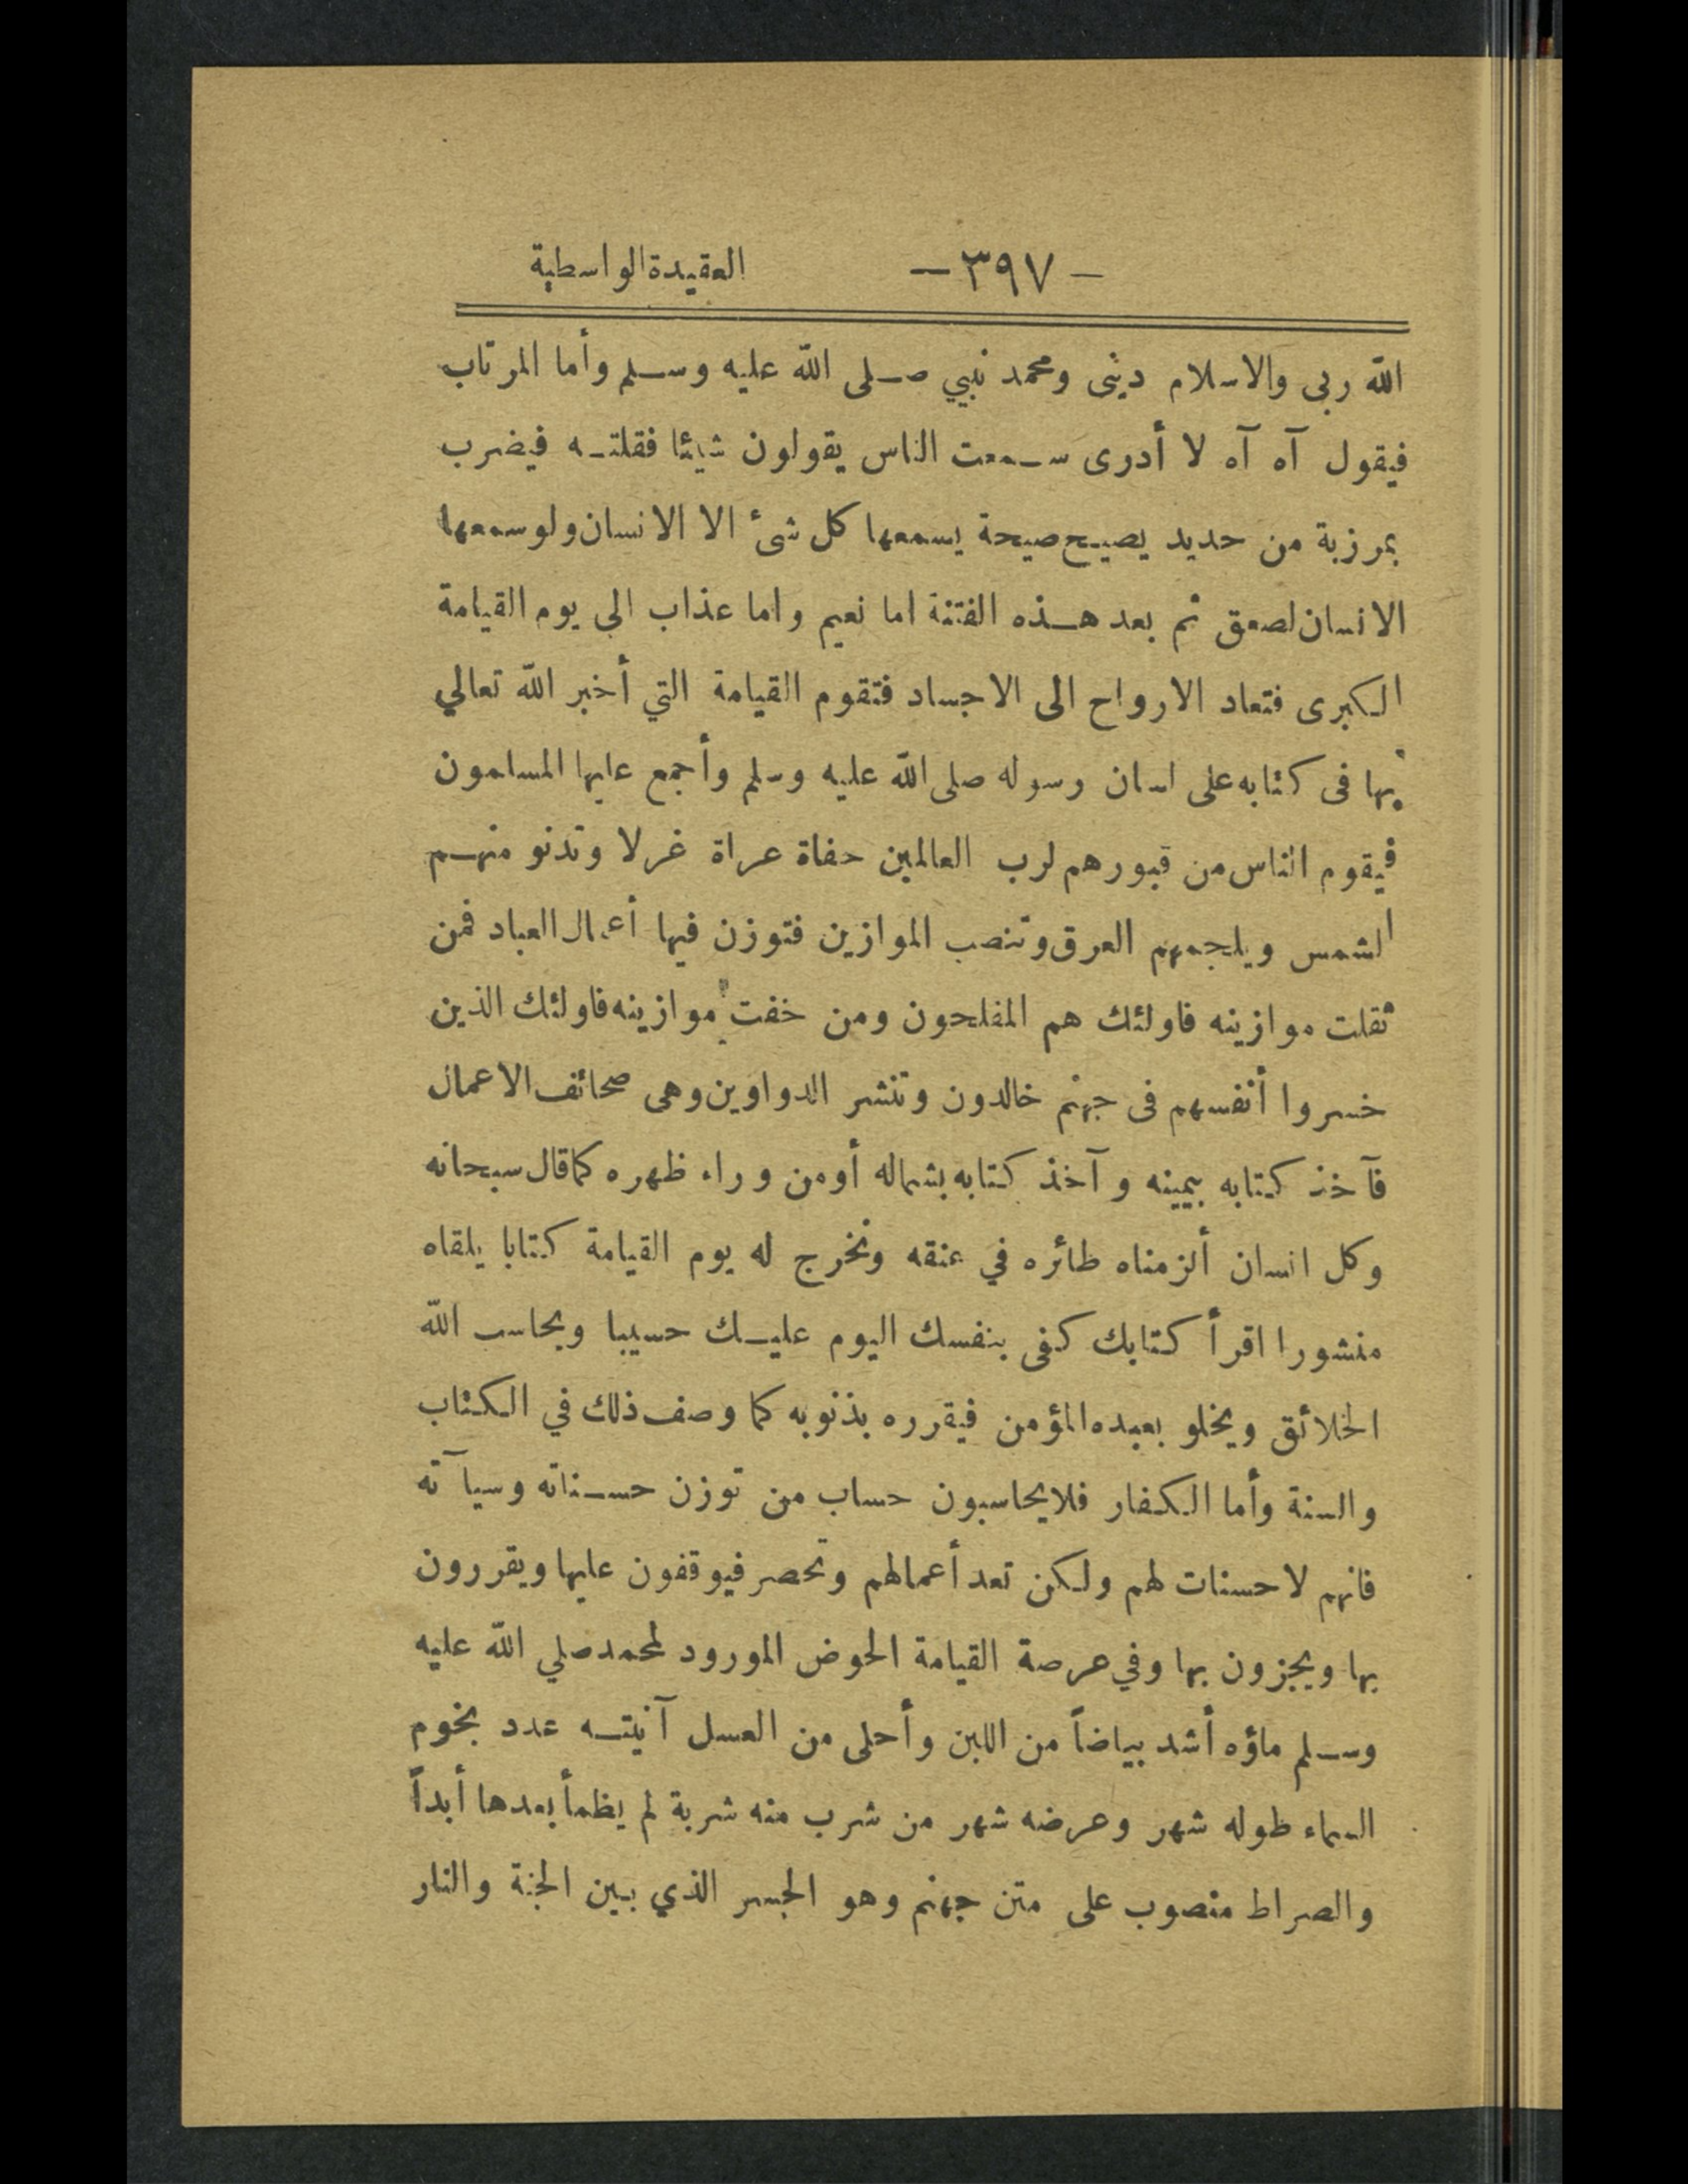 — ٣٩٧ — العقيدة الواسطية
الله ربى والاسلام دينى ومحمد نبيي صلى الله عليه وسلم وأما المرتاب
فيقول آه آه لا أدرى سمعت الناس يقولون شيئا فقلته فيضرب
بمرزبة من حديد يصيح صيحة يسمعها كل شئ الا الانسان ولو سمعها
الانسان لصعق ثم بعد هذه الفتنة اما نعيم واما عذاب الى يوم القيامة
الكبرى فتعاد الارواح الى الاجساد فتقوم القيامة التي أخبر الله تعالي
بها فى كتابه على لسان رسوله صلى الله عليه وسلم وأجمع عليها المسلمون
فيقوم الناس من قبورهم لرب العالمين حفاة عراة غرلا وتدنو منهم
الشمس ويلجمهم العرق وتنصب الموازين فتوزن فيها أعمال العباد فمن
ثقلت موازينه فاولئك هم المفلحون ومن خفت موازينه فاولئك الذين
خسروا أنفسهم فى جهنم خالدون وتنشر الدواوين وهى صحائف الاعمال
فآخذ كتابه بيمينه وآخذ كتابه بشماله أو من وراء ظهره كما قال سبحانه
وكل انسان ألزمناه طائره في عنقه ونخرج له يوم القيامة كتابا يلقاه
منشورا اقرأ كتابك كفى بنفسك اليوم عليك حسيبا ويحاسب الله
الخلائق ويخلو بعبده المؤمن فيقرره بذنوبه كما وصف ذلك في الكتاب
والسنة وأما الكفار فلا يحاسبون حساب من توزن حسناته وسيآته
فانهم لا حسنات لهم ولكن تعد أعمالهم وتحصر فيوقفون عليها ويقررون
بها ويجزون بها وفي عرصة القيامة الحوض المورود لمحمد صلي الله عليه
وسلم ماؤه أشد بياضاً من اللبن وأحلى من العسل آنيته عدد نجوم
السماء طوله شهر وعرضه شهر من شرب منه شربة لم يظمأ بعدها أبداً
والصراط منصوب على متن جهنم وهو الجسر الذي بين الجنة والنار